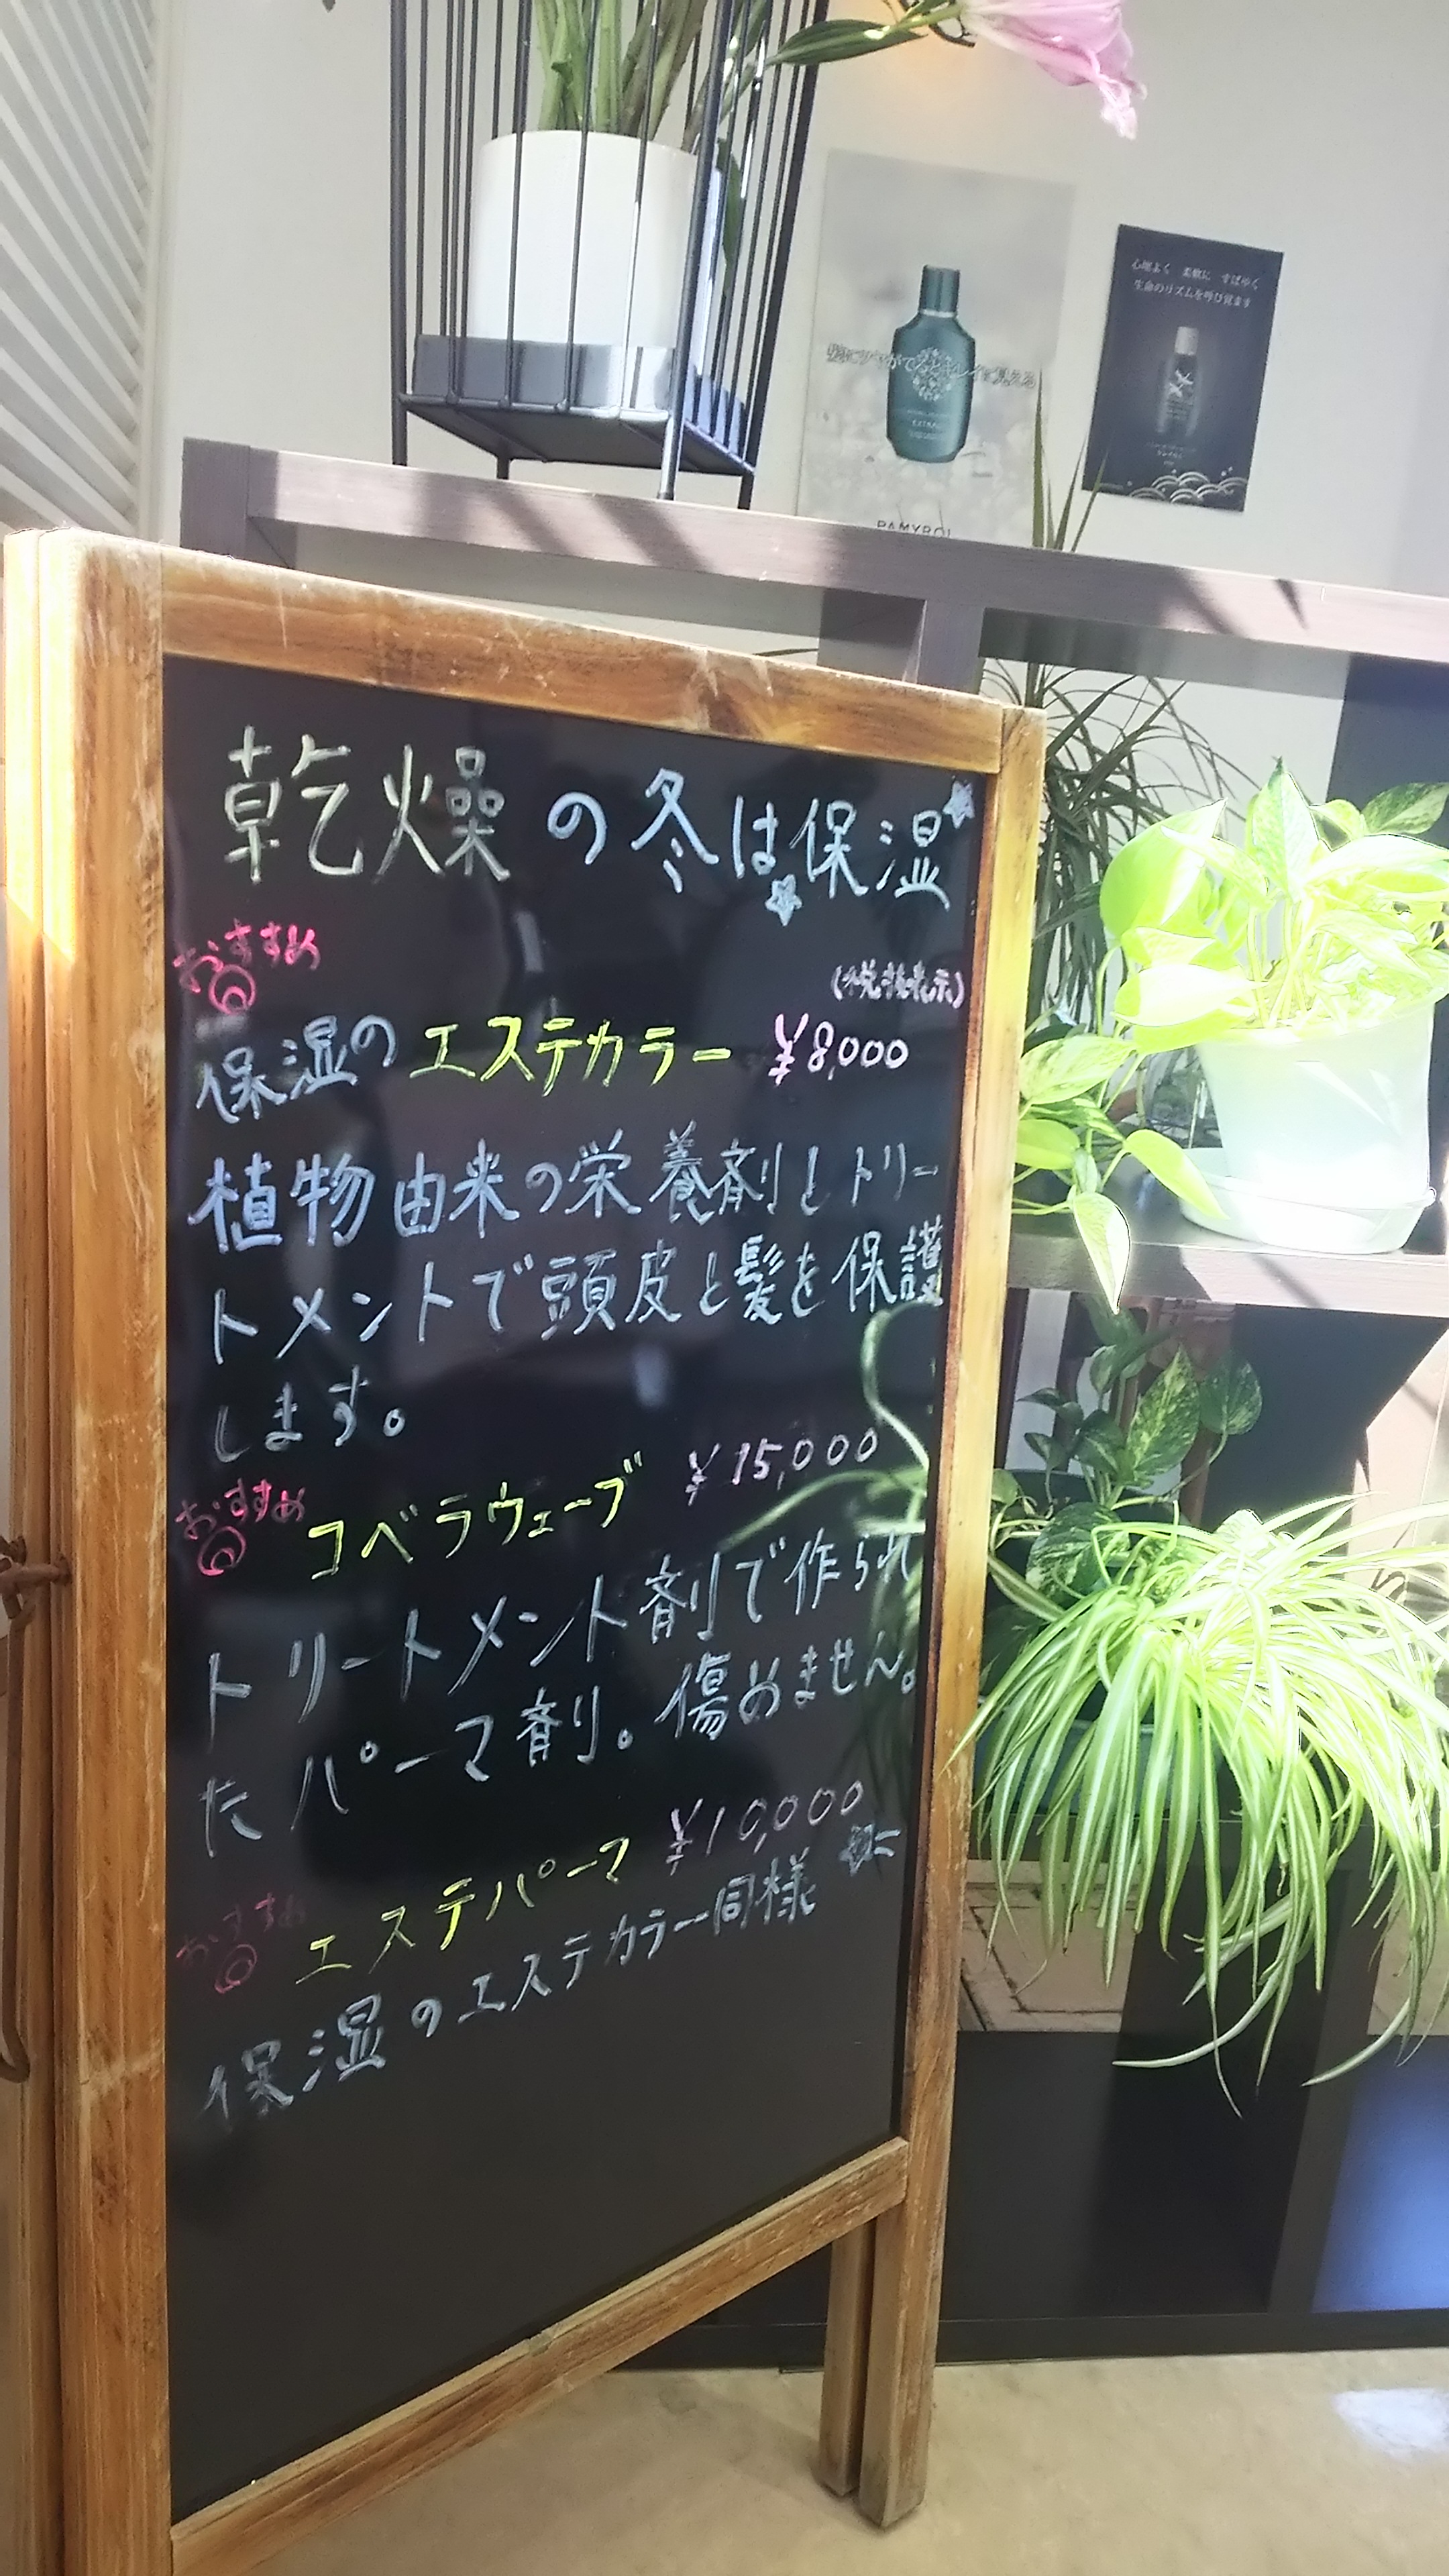 心地よく 柔軟に すばやく
生命のリズムを呼び覚ます
髪にツヤがでるとキレイに見える
EXTRA
PAMYROL
乾燥の冬は保湿
おすすめ
(税抜表示)
保湿のエステカラー ¥8,000
植物由来の栄養剤とトリー
トメントで頭皮と髪を保護
します。
おすすめ コベラウェーブ ¥15,000
トリートメント剤で作られ
たパーマ剤。傷めません。
おすすめ エステパーマ ¥10,000
保湿のエステカラー同様